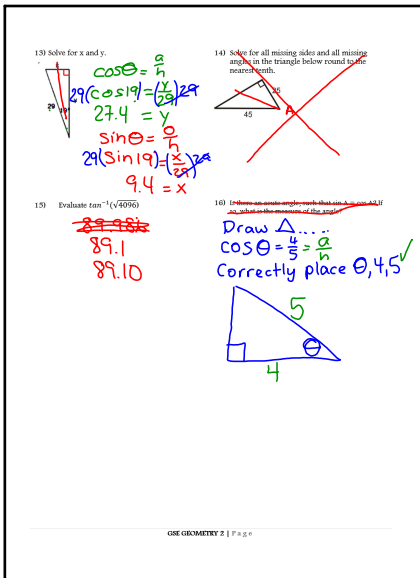 13) Solve for x and y.
29
19°
cosθ = a/h
29(cos19) = (y/29)29
27.4 = y
sinθ = o/h
29(sin19) = (x/29)29
9.4 = x
14) Solve for all missing sides and all missing
angles in the triangle below round to the
nearest tenth.
25
45
A
15) Evaluate tan⁻¹(√4096)
89.1
89.10
16) Is there an acute angle, such that sin A = cos A? If
so, what is the measure of the angle?
Draw △.....
COS θ = 4/5 = a/h
Correctly place θ,4,5 ✓
5
θ
4
GSE GEOMETRY 2 | Page